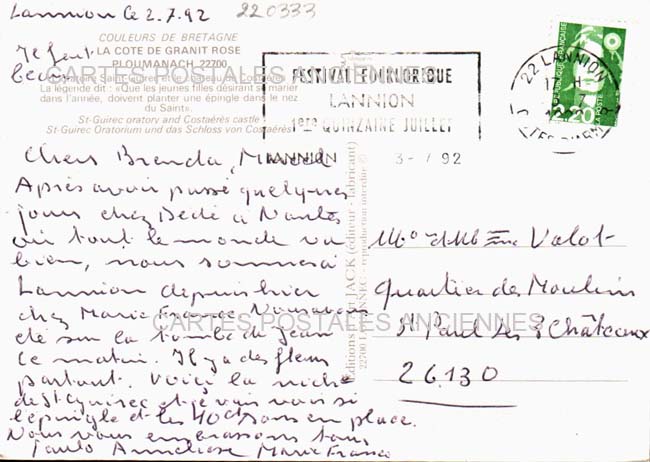 Lannion le 2.7.92
220333
Il faut
beau
COULEURS DE BRETAGNE
LA COTE DE GRANIT ROSE
PLOUMANACH 22700
CARTES POSTALES ANCIENNES
La légende dit : «Que les jeunes filles désirant se marier
dans l'année, doivent planter une épingle dans le nez
du Saint».
St-Guirec oratory and Costaérès castle
St-Guirec Oratorium und das Schloss von Costaérès
FESTIVAL FOLKLORIQUE
LANNION
1ere QUINZAINE JUILLET
LANNION 3-7 92
22 LANNION
17 H
COTES D'ARMOR
REPUBLIQUE FRANÇAISE
LA POSTE
2,20
Chers Brenda, Marcel
Après avoir passé quelques
jours chez Dédé à Nantes
où tout le monde va
bien, nous sommes à
Lannion depuis hier
chez Marie France. Nous avons
été sur la tombe de Jean
ce matin. Il y a des fleurs
partout. Voici la niche
de St Guirec et je vais voir si
l'épingle et les sont en place.
Nous vous embrassons tous
Paulo Anneliese Marie France
Editions JACK (éditeur - fabricant)
22700 LOUANNEC - reproduction interdite ©
Mr et Mme Valot
Quartier des Moulins
St Paul les 3 Châteaux
26.130
CARTES POSTALES ANCIENNES